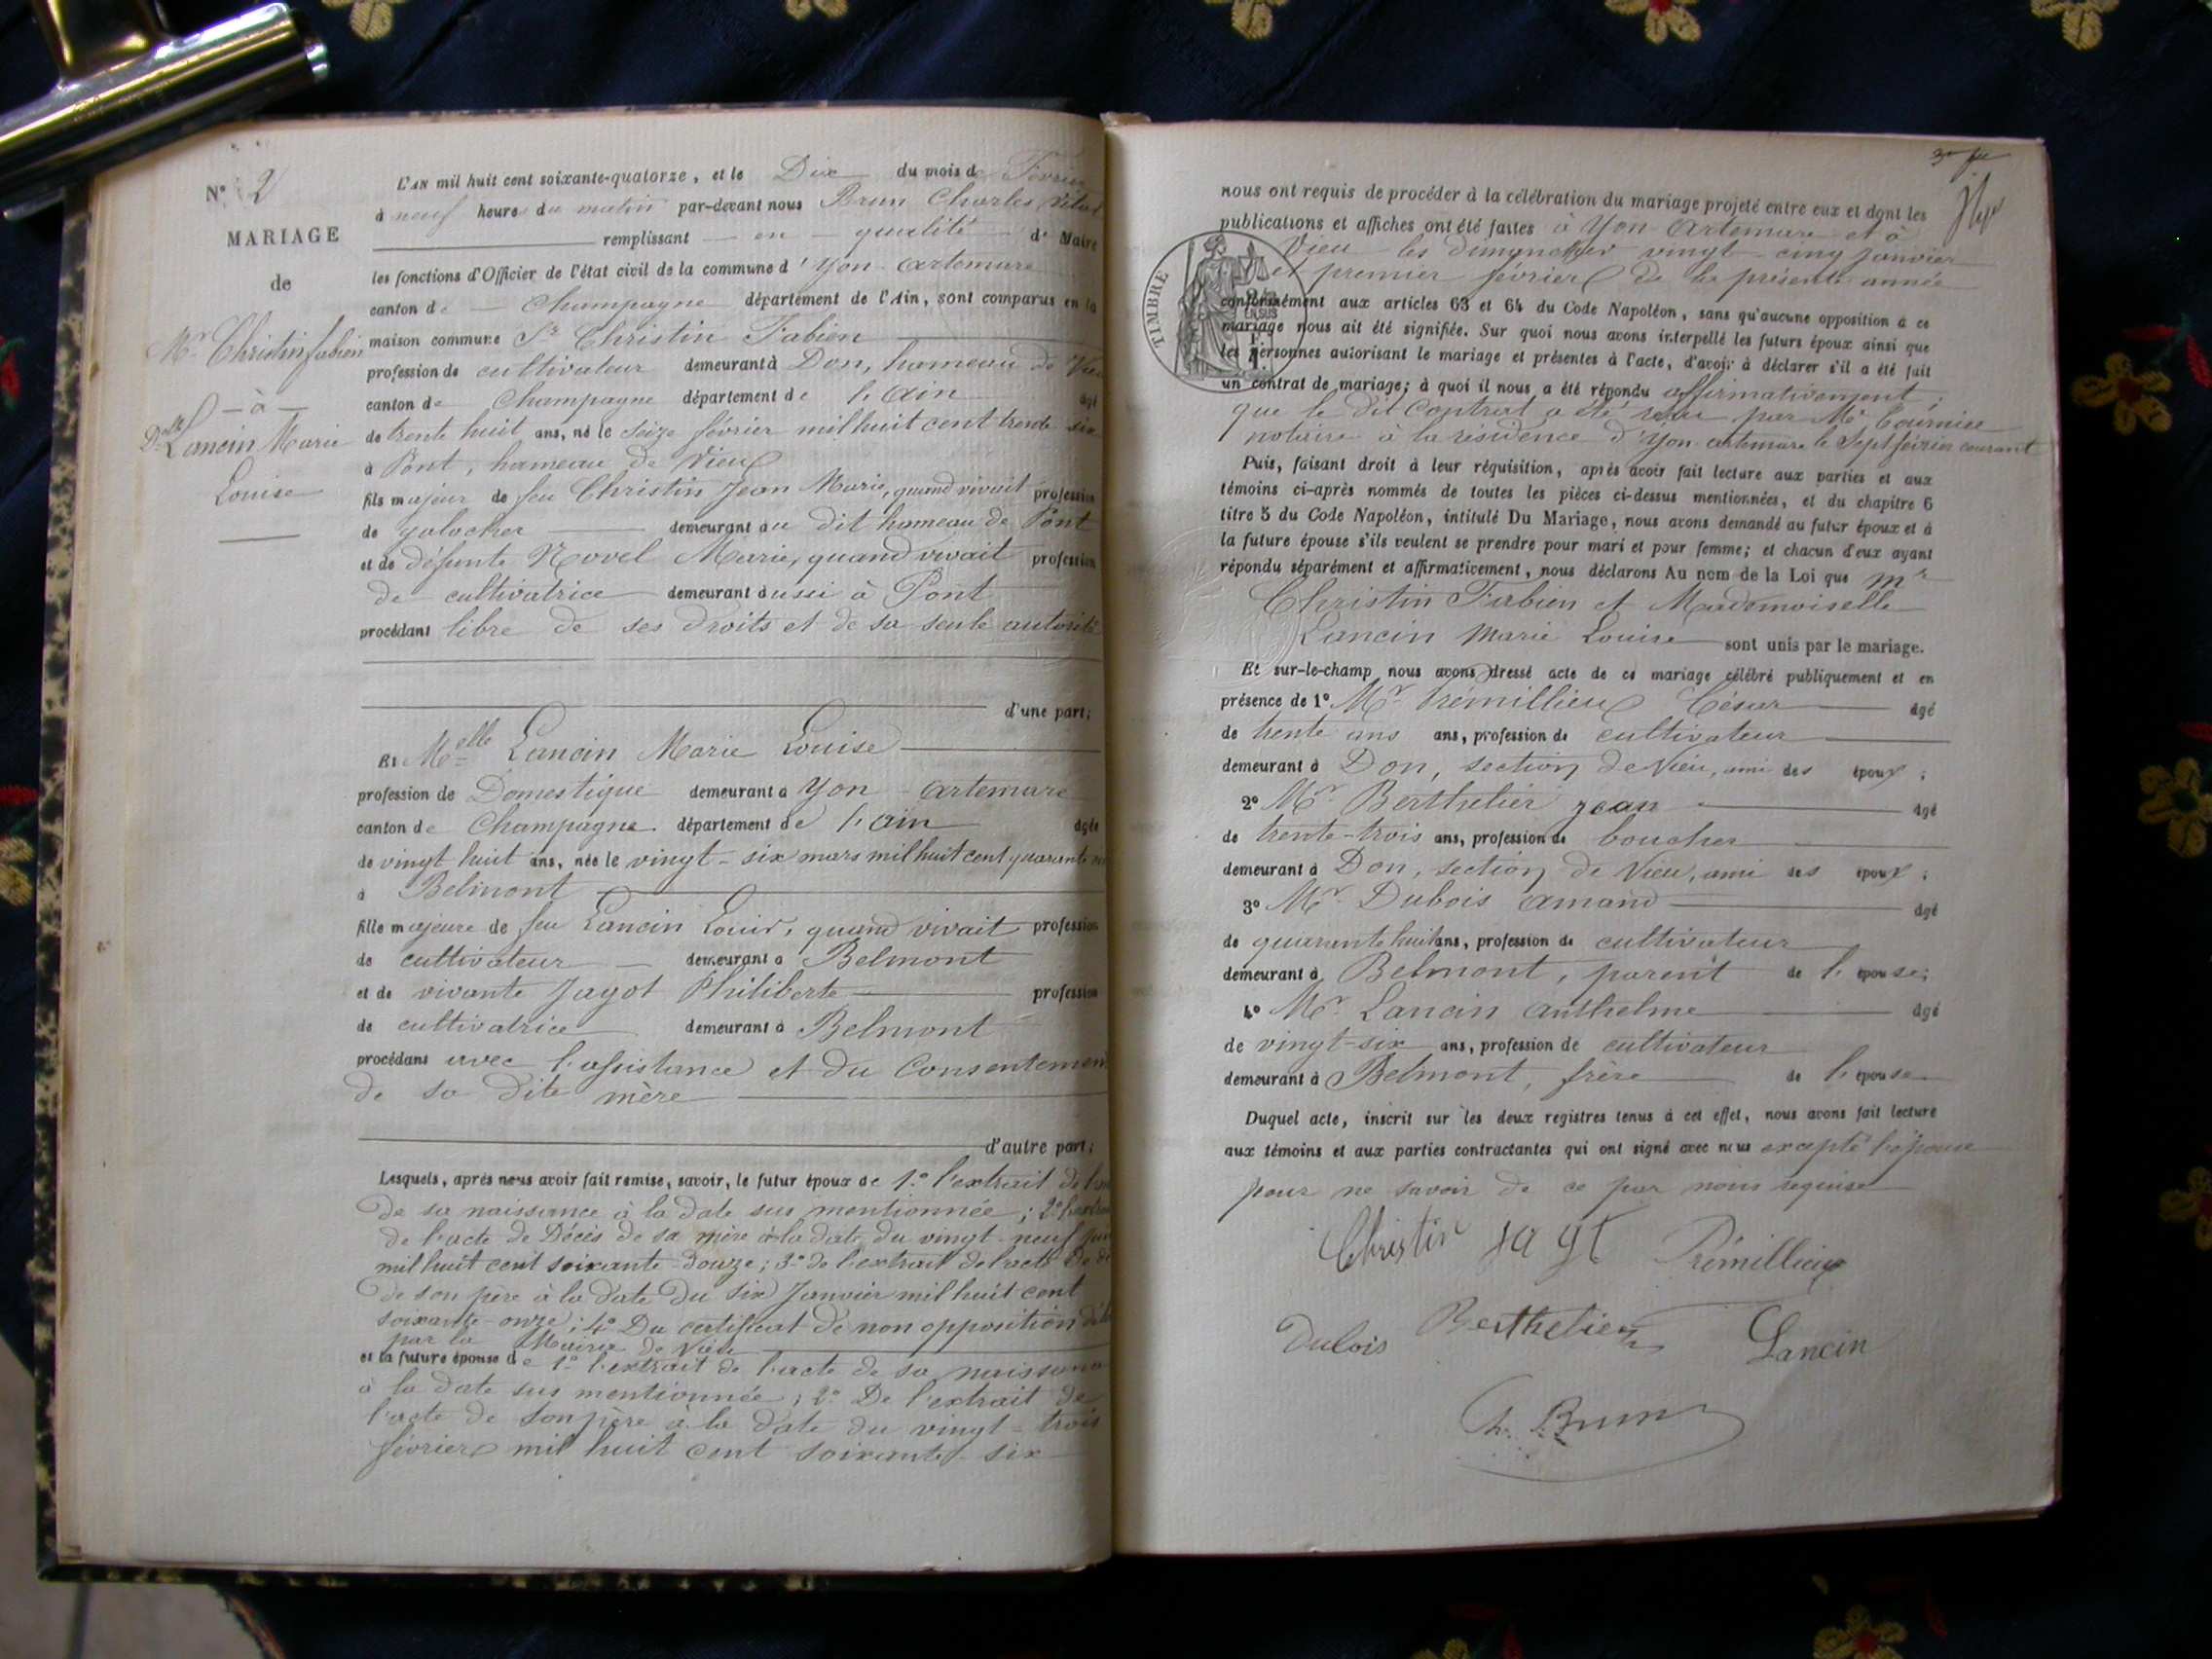 N° 2
MARIAGE
de
Mr. Christin fabien
— à —
Dlle Lancin Marie
Louise
L'AN mil huit cent soixante-quatorze, et le Dix du mois de Février
à neuf heures du matin par-devant nous Brun Charles
remplissant en qualité de Maire
les fonctions d'Officier de l'état civil de la commune d'Yon-Artemare
canton de Champagne département de l'Ain, sont comparus en la
maison commune Sr Christin Fabien
profession de cultivateur demeurant à Don, hameau de Vieu
canton de Champagne département de l'Ain âgé
de trente huit ans, né le seize février mil huit cent trente six
à Pont, hameau de Vieu
fils majeur de feu Christin Jean Marie, quand vivait profession
de galocher demeurant au dit hameau de Pont
et de défunte Novel Marie, quand vivait profession
de cultivatrice demeurant aussi à Pont
procédant libre de ses droits et de sa seule autorité
d'une part;
Et Melle Lancin Marie Louise
profession de Domestique demeurant à Yon-Artemare
canton de Champagne département de l'Ain âgée
de vingt huit ans, née le vingt-six mars mil huit cent quarante
à Belmont
fille majeure de feu Lancin Louis, quand vivait profession
de cultivateur demeurant à Belmont
et de vivante Jagot Philiberte profession
de cultivatrice demeurant à Belmont
procédant avec l'assistance et du consentement
de sa dite mère
d'autre part;
Lesquels, après nous avoir fait remise, savoir, le futur époux de 1° l'extrait de
de sa naissance à la date sus mentionnée; 2° l'extrait
de l'acte de Décès de sa mère à la date du vingt-neuf
mil huit cent soixante-douze; 3° de l'extrait de l'acte de
de son père à la date du six Janvier mil huit cent
soixante-onze; 4° Du certificat de non opposition
par la Mairie de Vieu
et la future épouse de 1° l'extrait de l'acte de sa naissance
à la date sus mentionnée; 2° De l'extrait de
l'acte de son père à la date du vingt-trois
février mil huit cent soixante-six
nous ont requis de procéder à la célébration du mariage projeté entre eux et dont les
publications et affiches ont été faites à Yon-Artemare et à
Vieu les dimanches vingt-cinq janvier
et premier février de la présente année
TIMBRE
conformément aux articles 63 et 64 du Code Napoléon, sans qu'aucune opposition à ce
mariage nous ait été signifiée. Sur quoi nous avons interpellé les futurs époux ainsi que
les personnes autorisant le mariage et présentes à l'acte, d'avoir à déclarer s'il a été fait
un contrat de mariage; à quoi il nous a été répondu affirmativement;
que le dit Contrat a été reçu par Me
notaire à la résidence d'Yon-Artemare le sept février courant
Puis, faisant droit à leur réquisition, après avoir fait lecture aux parties et aux
témoins ci-après nommés de toutes les pièces ci-dessus mentionnées, et du chapitre 6
titre 5 du Code Napoléon, intitulé Du Mariage, nous avons demandé au futur époux et à
la future épouse s'ils veulent se prendre pour mari et pour femme; et chacun d'eux ayant
répondu séparément et affirmativement, nous déclarons Au nom de la Loi que Mr
Christin Fabien et Mademoiselle
Lancin Marie Louise sont unis par le mariage.
Et sur-le-champ nous avons dressé acte de ce mariage célébré publiquement et en
présence de 1° Mr Prémillieu César âgé
de trente ans ans, profession de cultivateur
demeurant à Don, section de Vieu, ami des époux;
2° Mr. Berthelier Jean âgé
de trente-trois ans, profession de boucher
demeurant à Don, section de Vieu, ami des époux;
3° Mr. Dubois Amand âgé
de quarante huit ans, profession de cultivateur
demeurant à Belmont, parent de l'épouse;
4° Mr. Lancin Anthelme âgé
de vingt-six ans, profession de cultivateur
demeurant à Belmont, frère de l'épouse
Duquel acte, inscrit sur les deux registres tenus à cet effet, nous avons fait lecture
aux témoins et aux parties contractantes qui ont signé avec nous excepté l'épouse
pour ne savoir de ce par nous requise
Christin Prémillieu
Dubois Berthelier Lancin
Ch. Brun